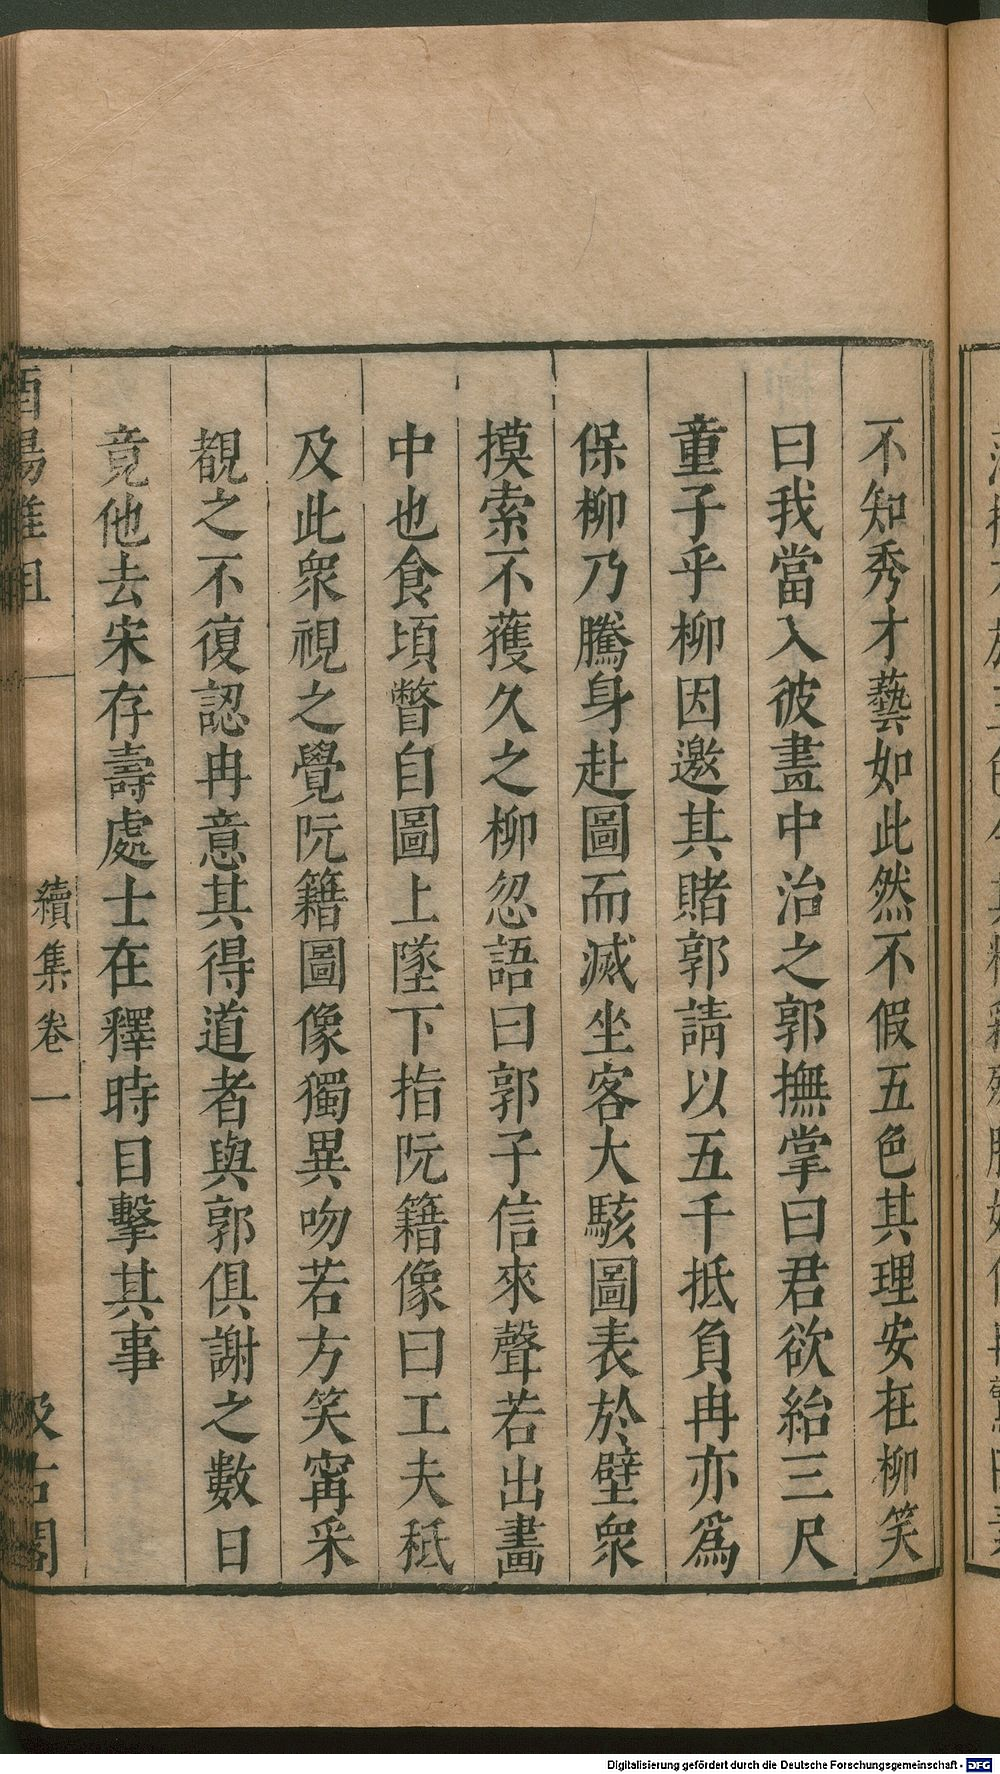 不知秀才藝如此然不假五色其理安在柳笑
曰我當入彼畫中治之郭撫掌曰君欲紿三尺
童子乎柳因邀其賭郭請以五千抵負冉亦爲
保柳乃騰身赴圖而滅坐客大駭圖表於壁衆
摸索不獲久之柳忽語曰郭子信來聲若出畫
中也食頃瞥自圖上墜下指阮籍像曰工夫秖
及此衆視之覺阮籍圖像獨異吻若方笑甯采
覩之不復認冉意其得道者與郭俱謝之數日
竟他去宋存壽處士在釋時目擊其事
酉陽雜俎 續集卷一 汲古閣
Digitalisierung gefördert durch die Deutsche Forschungsgemeinschaft - DFG